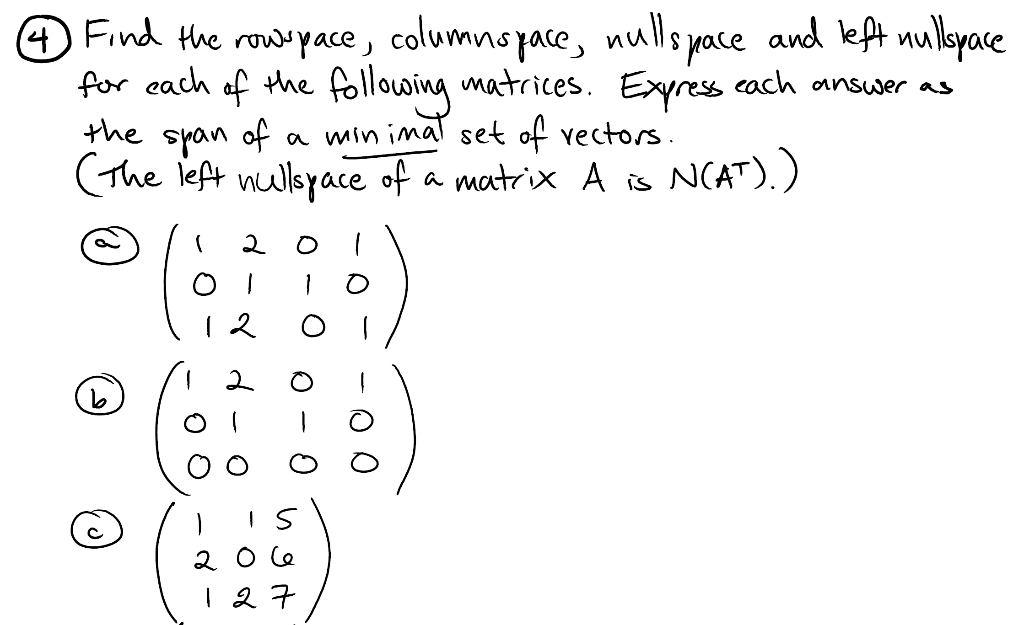 ④ Find the rowspace, columnspace, nullspace and left nullspace
for each of the following matrices. Express each answer as
the span of a minimal set of vectors.
(The left nullspace of a matrix A is N(Aᵀ).)
ⓐ
1 2 0 1
0 1 1 0
1 2 0 1
ⓑ
1 2 0 1
0 1 1 0
0 0 0 0
ⓒ
1 1 5
2 0 6
1 2 7